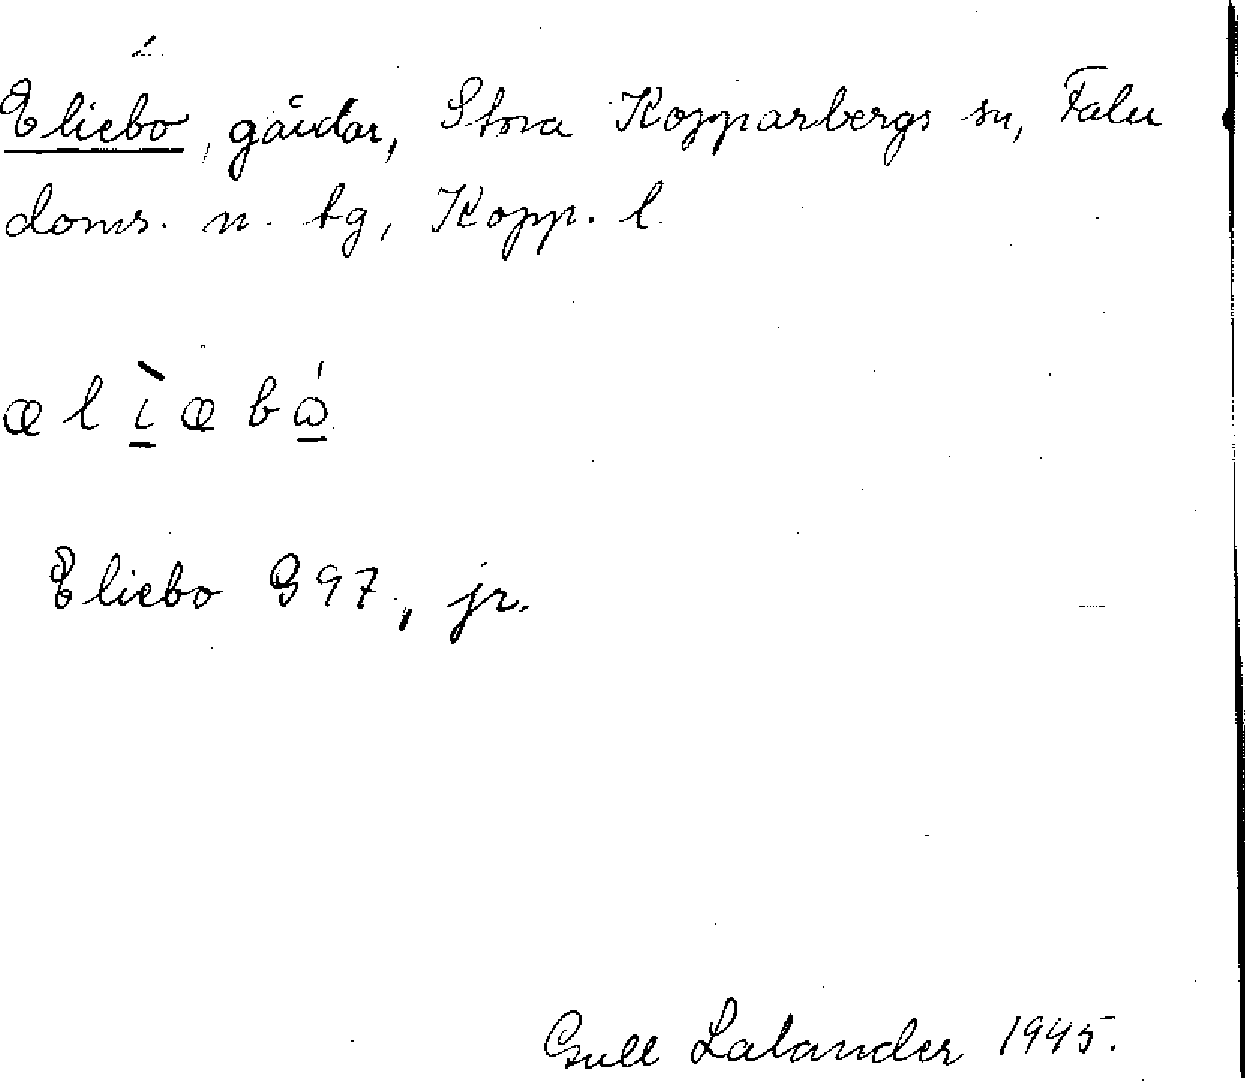 Eliebo, gårdar, Stora Kopparbergs sn, Falu
doms. n. tg, Kopp. l.
æ l ì æ b ó
Eliebo G97, jr.
Gull Lalander 1945.